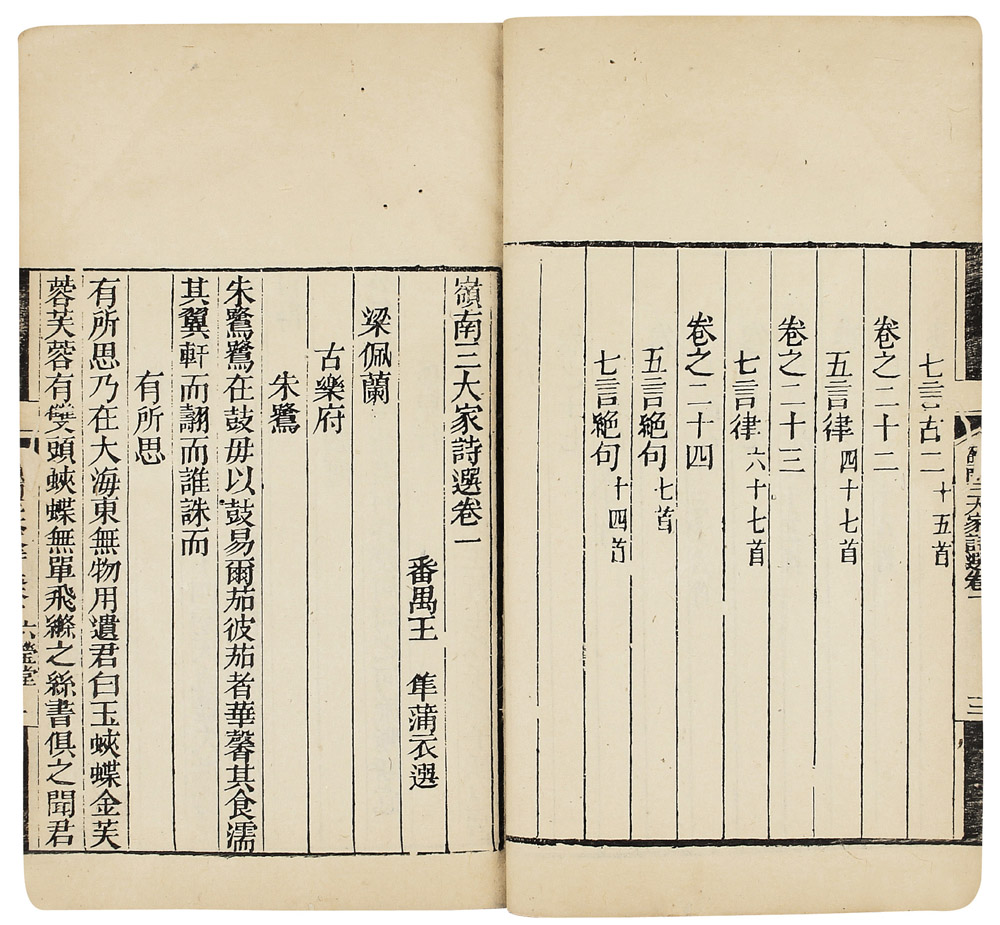 七言古二十五首
卷之二十二
五言律四十七首
卷之二十三
七言律六十七首
卷之二十四
五言絕句七首
七言絕句十四首
三大家詩選卷一
三
嶺南三大家詩選卷一
番禺王 隼蒲衣選
梁佩蘭
古樂府
朱鷺
朱鷺鷺在鼓毋以鼓易爾茄彼茄者華馨其食濡
其翼軒而翿而誰誅而
有所思
有所思乃在大海東無物用遺君白玉蛺蝶金芙
蓉芙蓉有雙頭蛺蝶無單飛縧之絲書俱之聞君
六瑩堂
一